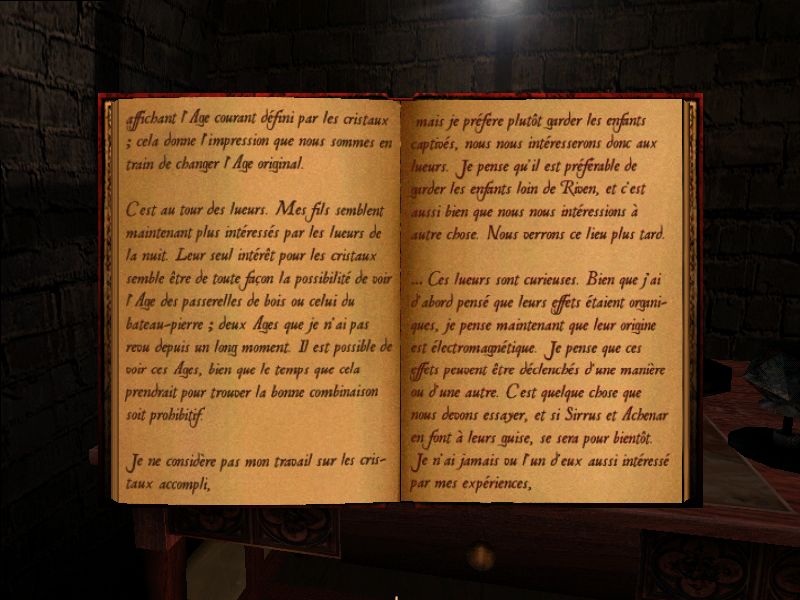 affichant l'Age courant défini par les cristaux
; cela donne l'impression que nous sommes en
train de changer l'Age original.
C'est au tour des lueurs. Mes fils semblent
maintenant plus intéressés par les lueurs de
la nuit. Leur seul intérêt pour les cristaux
semble être de toute façon la possibilité de voir
l'Age des passerelles de bois ou celui du
bateau-pierre ; deux Ages que je n'ai pas
revu depuis un long moment. Il est possible de
voir ces Ages, bien que le temps que cela
prendrait pour trouver la bonne combinaison
soit prohibitif.
Je ne considère pas mon travail sur les cris-
taux accompli,
mais je préfère plutôt garder les enfants
captivés, nous nous intéresserons donc aux
lueurs. Je pense qu'il est préférable de
garder les enfants loin de Riven, et c'est
aussi bien que nous nous intéressions à
autre chose. Nous verrons ce lieu plus tard.
... Ces lueurs sont curieuses. Bien que j'ai
d'abord pensé que leurs effets étaient organi-
ques, je pense maintenant que leur origine
est électromagnétique. Je pense que ces
effets peuvent être déclenchés d'une manière
ou d'une autre. C'est quelque chose que
nous devons essayer, et si Sirrus et Achenar
en font à leurs guise, se sera pour bientôt.
Je n'ai jamais vu l'un d'eux aussi intéressé
par mes expériences,